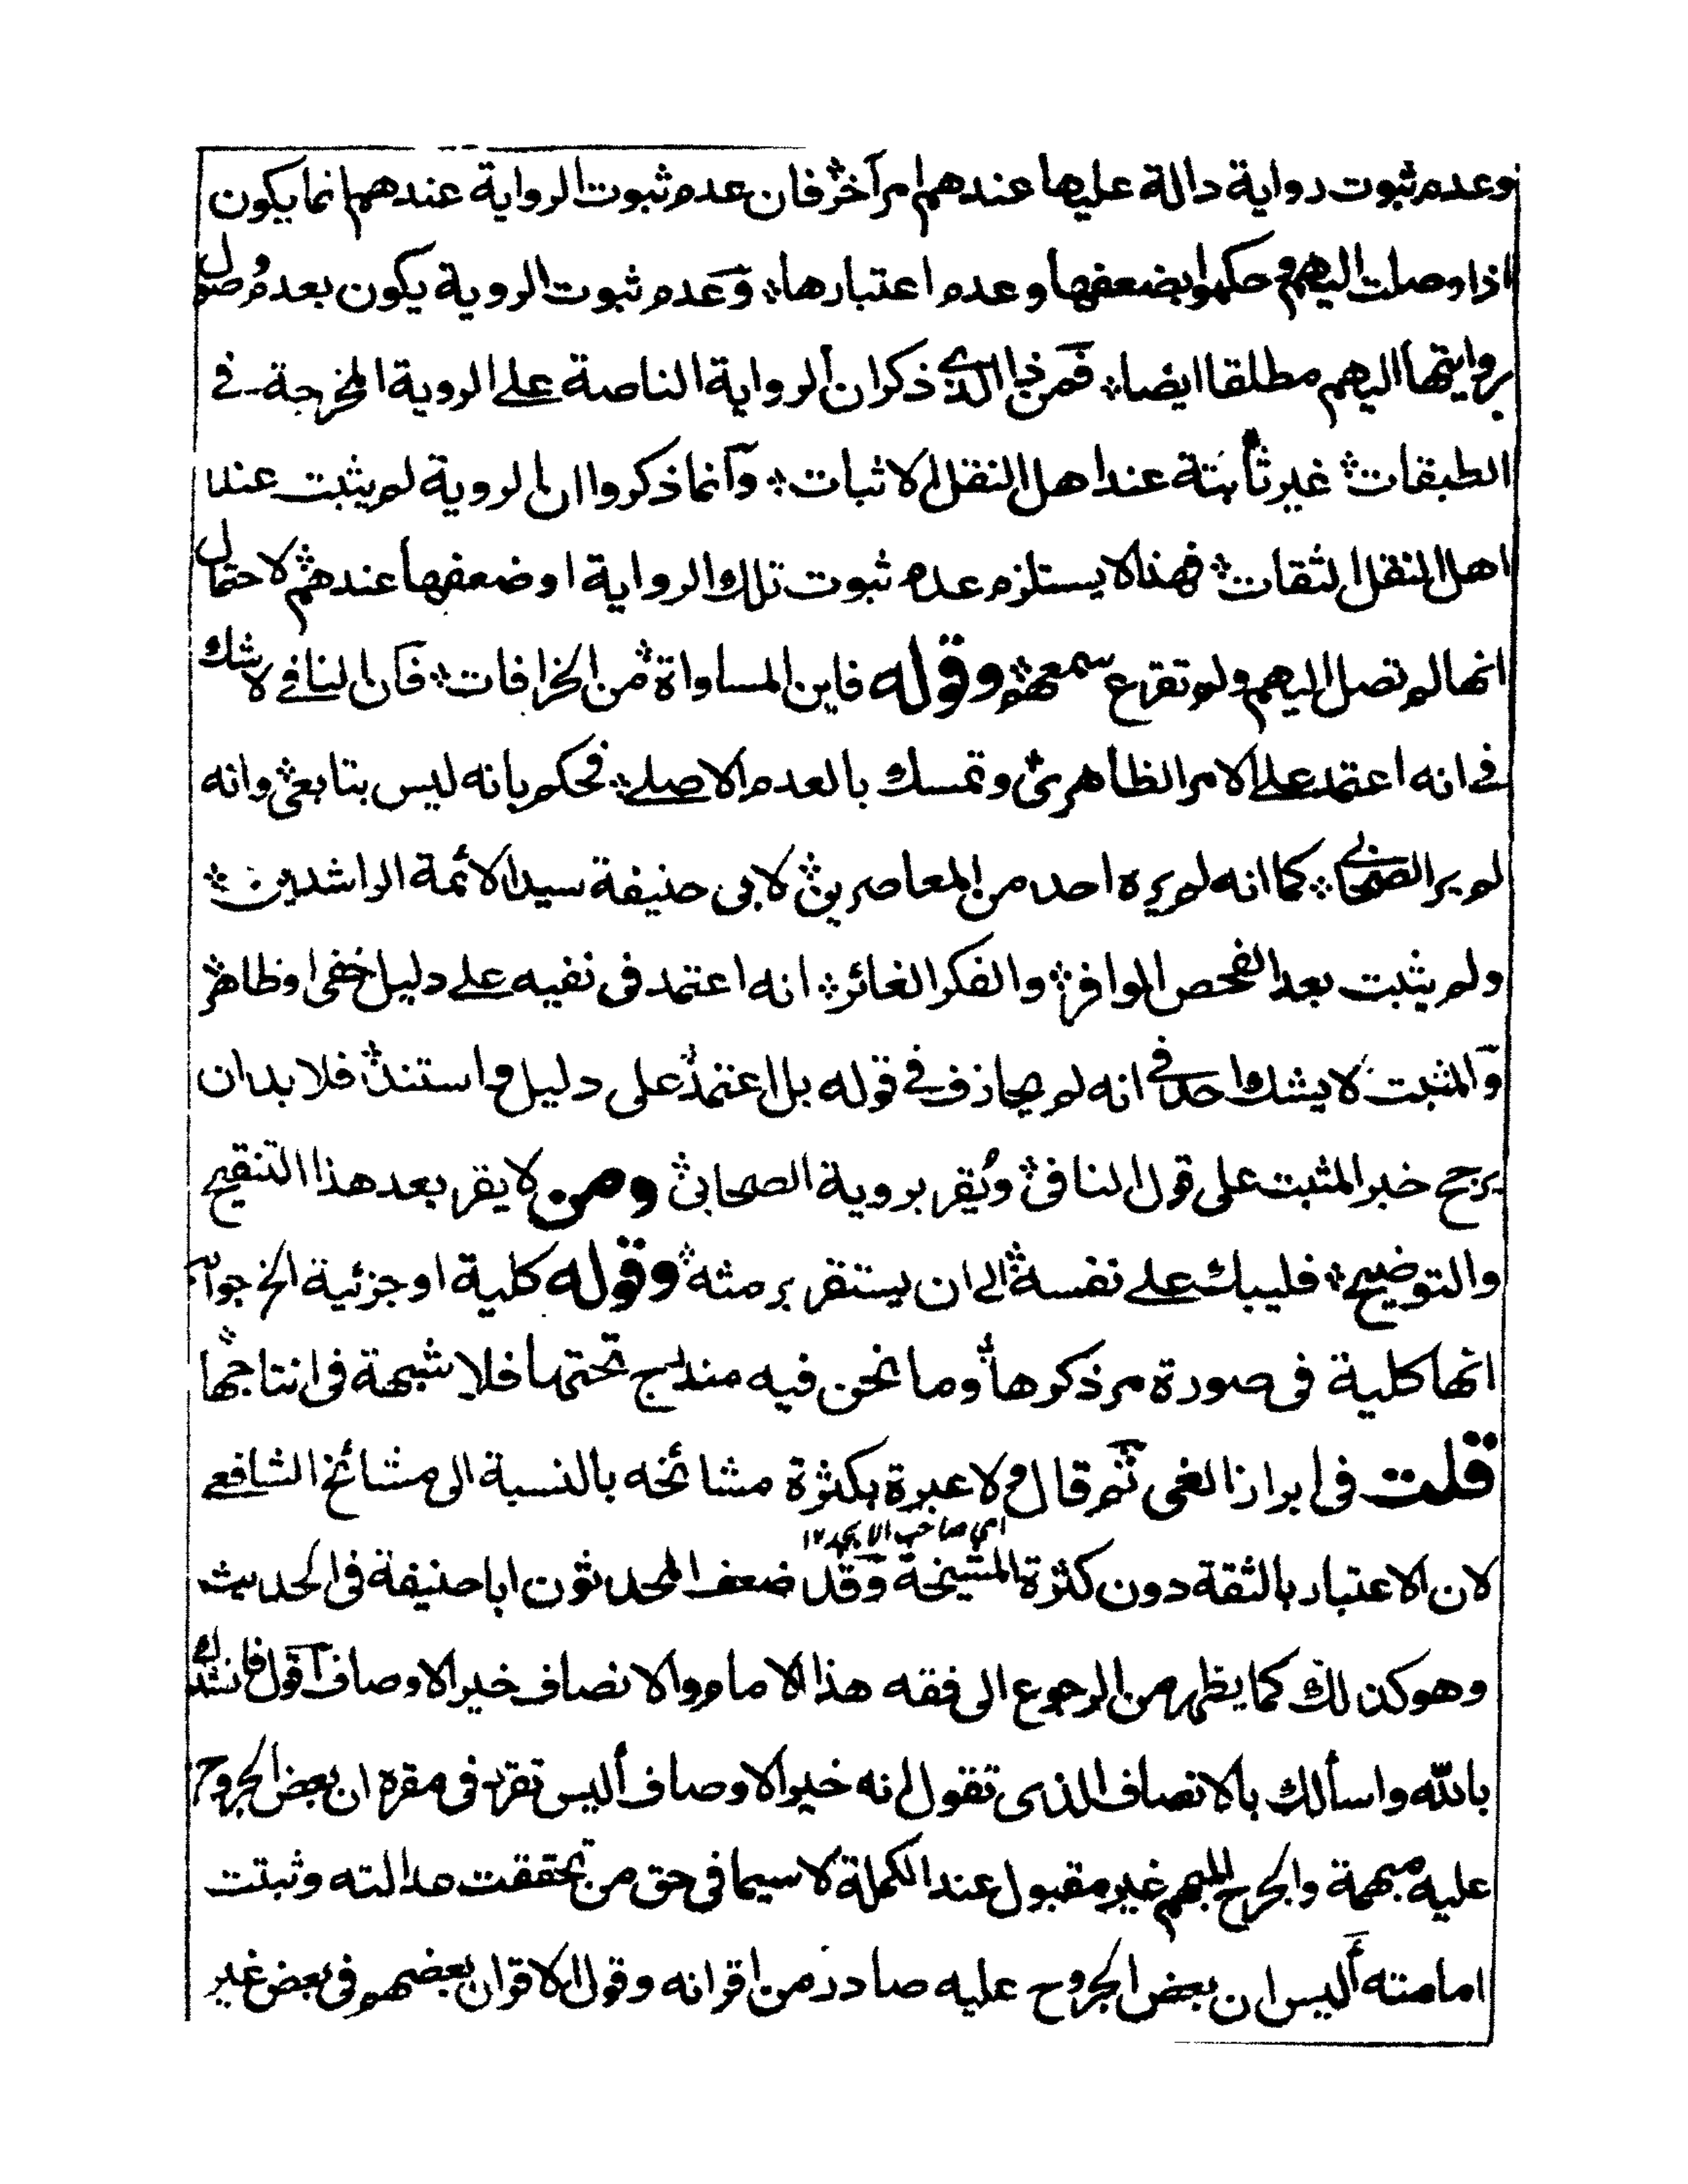 وعدم ثبوت رواية دالة عليها عندهم امر آخر فان عدم ثبوت الرواية عندهم انما يكون
اذا وصلت اليهم وحكموا بضعفها وعدم اعتبارها وعدم ثبوت الروية يكون بعدم وصول
روايتها اليهم مطلقا ايضا فمن ذا الذي ذكر ان الرواية الناصة على الروية المخرجة في
الطبقات غير ثابتة عند اهل النقل الاثبات وانما ذكروا ان الروية لم يثبت عند
اهل النقل الثقات فهذا لا يستلزم عدم ثبوت تلك الرواية او ضعفها عندهم لاحتمال
انها لم تصل اليهم ولم تقرع سمعهم وقوله فاين المساواة من الخرافات فان النافي لا شك
في انه اعتمد على الامر الظاهري وتمسك بالعدم الاصلي فحكم بانه ليس بتابعي وانه
لم ير الصحابي كما انه لم يره احد من المعاصرين لابي حنيفة سيد الائمة الراشدين
ولم يثبت بعد الفحص الوافر والفكر الغائر انه اعتمد في نفيه على دليل خفي او ظاهر
والمثبت لا يشك احد في انه لم يجازف في قوله بل اعتمد على دليل واستند فلا بد ان
يرجح خبر المثبت على قول النافي ويقر بروية الصحابي ومن لا يقر بعد هذا التنقيح
والتوضيح فليبك على نفسه الى ان يستقر برمثه وقوله كلية او جزئية الخ جوابه
انها كلية في صورة مر ذكرها وما نحن فيه مندرج تحتها فلا شبهة في انتاجها
قلت في ابراز الغي ثم قال ولا عبرة بكثرة مشائخه بالنسبة الى مشائخ الشافعي
اي صاحب الابجد ١٢
لان الاعتبار بالثقة دون كثرة المشيخة وقد ضعف المحدثون ابا حنيفة في الحديث
وهو كذلك كما يظهر من الرجوع الى فقه هذا الامام والانصاف خير الاوصاف اقول فانشدك
بالله واسألك بالانصاف الذي تقول انه خير الاوصاف أليس تقرر في مقره ان بعض الجروح
عليه مبهمة والجرح المبهم غير مقبول عند الكملة لا سيما في حق من تحققت عدالته وثبتت
امامته أليس ان بعض الجروح عليه صادر من اقرانه وقول الاقران بعضهم في بعض غير